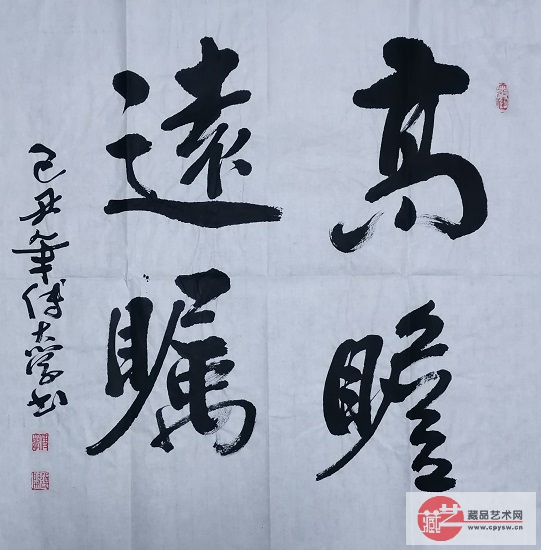 高瞻
遠瞩
己丑年傅大學书
藏品艺术网
www.cpysw.cn